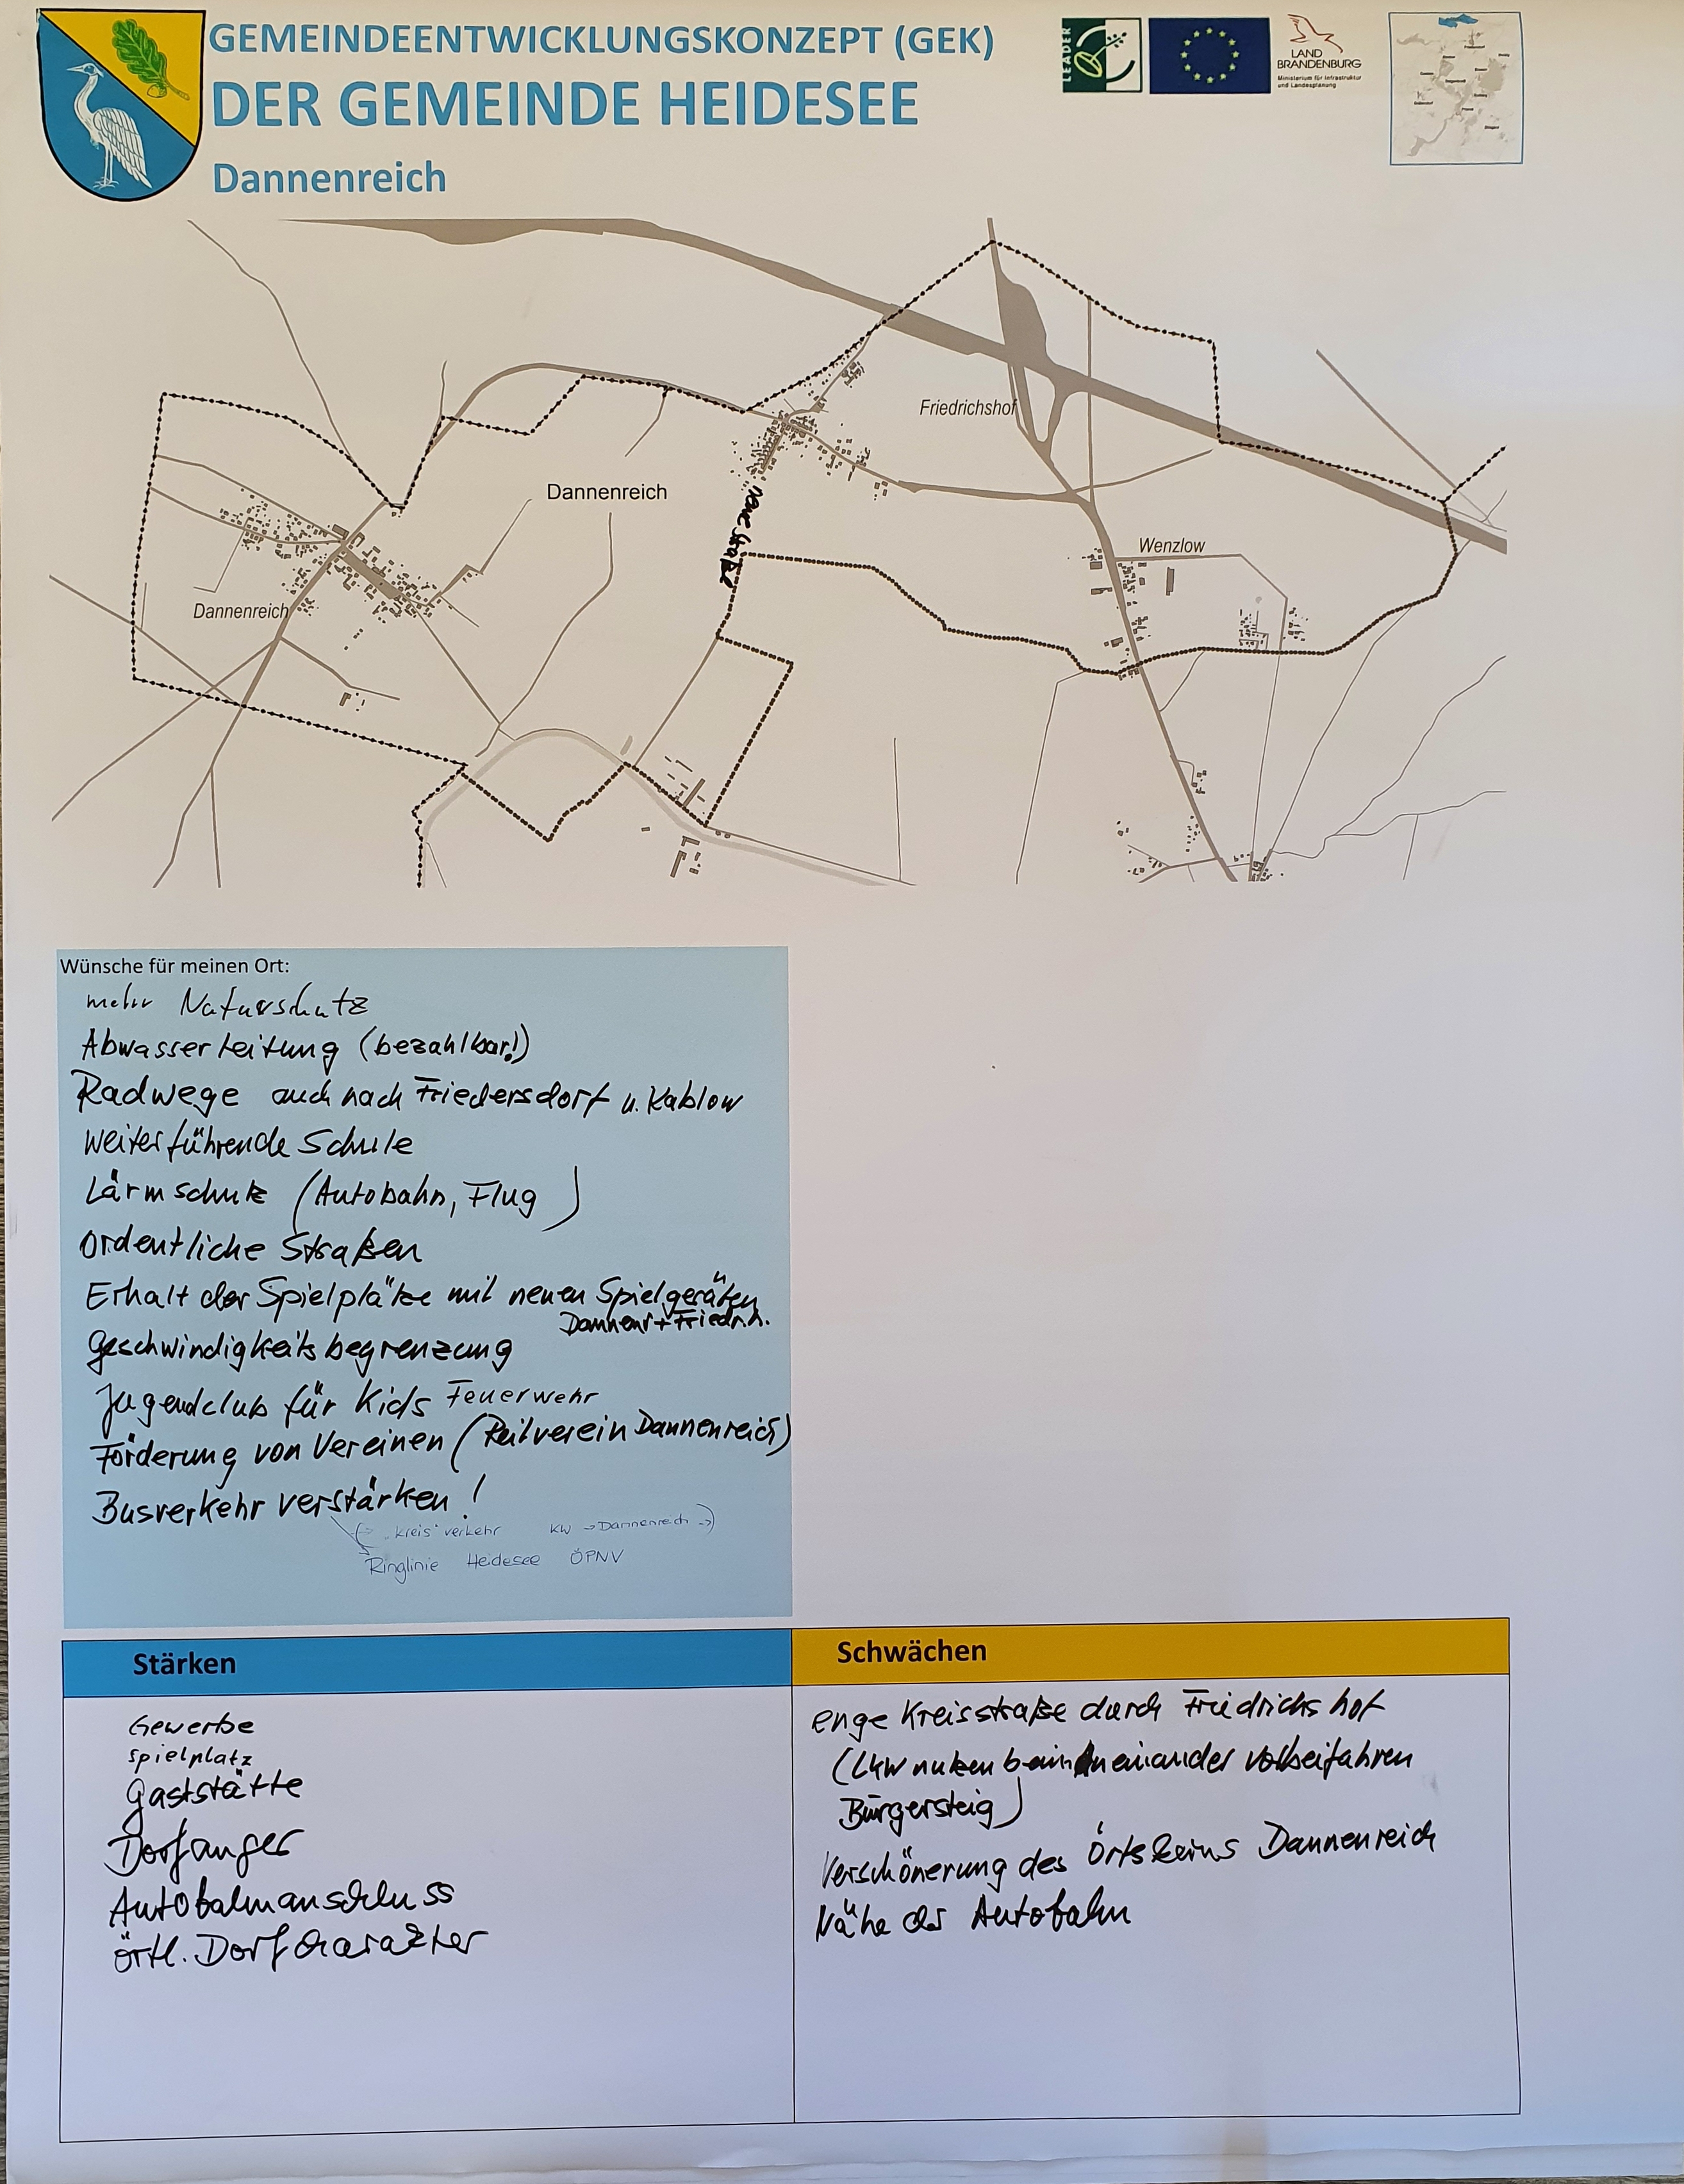 GEMEINDEENTWICKLUNGSKONZEPT (GEK)
DER GEMEINDE HEIDESEE
Dannenreich
LEADER
LAND
BRANDENBURG
Ministerium für Infrastruktur
und Landesplanung
Friedrichshof
Dannenreich
neue Straße
Wenzlow
Dannenreich
Wünsche für meinen Ort:
mehr Naturschutz
Abwasserleitung (bezahlbar!)
Radwege auch nach Friedersdorf u. Kablow
weiterführende Schule
Lärmschutz (Autobahn, Flug)
ordentliche Straßen
Erhalt der Spielplätze mit neuen Spielgeräten
Dannenr + Friedr.h.
Geschwindigkeitsbegrenzung
Jugendclub für Kids Feuerwehr
Förderung von Vereinen (Reitverein Dannenreich)
Busverkehr verstärken!
"kreis" verkehr KW → Dannenreich →)
Ringlinie Heidesee ÖPNV
Stärken
Gewerbe
Spielplatz
Gaststätte
Dorfanger
Autobahnanschluss
örtl. Dorfcharakter
Schwächen
enge Kreisstraße durch Friedrichshof
(LKW nutzen beim aneinander vorbeifahren
Bürgersteig)
Verschönerung des Ortskerns Dannenreich
Nähe der Autobahn